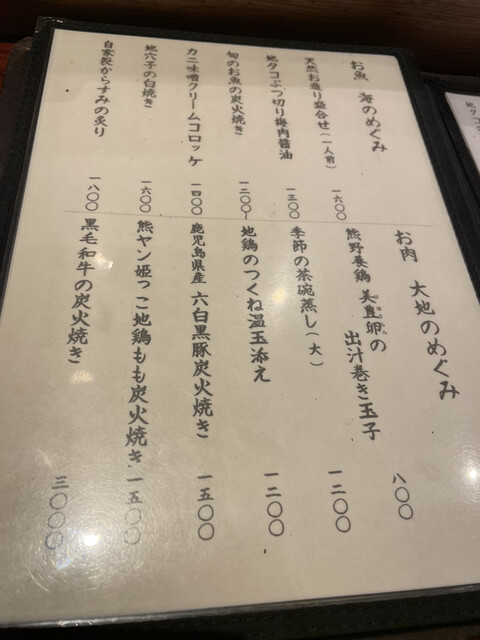 お魚 海のめぐみ
天然お造り盛合せ(一人前) 一六〇〇
地タコぶつ切り梅肉醤油 一三〇〇
旬のお魚の炭火焼き 一二〇〇〜
カニ味噌クリームコロッケ 一四〇〇
地穴子の白焼き 一六〇〇
自家製からすみの炙り 一八〇〇
お肉 大地のめぐみ
熊野養鶏 美豊卵の
出汁巻き玉子 八〇〇
季節の茶碗蒸し(大) 一二〇〇
地鶏のつくね温玉添え 一二〇〇
鹿児島県産 六白黒豚炭火焼き 一五〇〇
熊ヤン姫っこ地鶏もも炭火焼き 一五〇〇
黒毛和牛の炭火焼き 三〇〇〇
地タコ